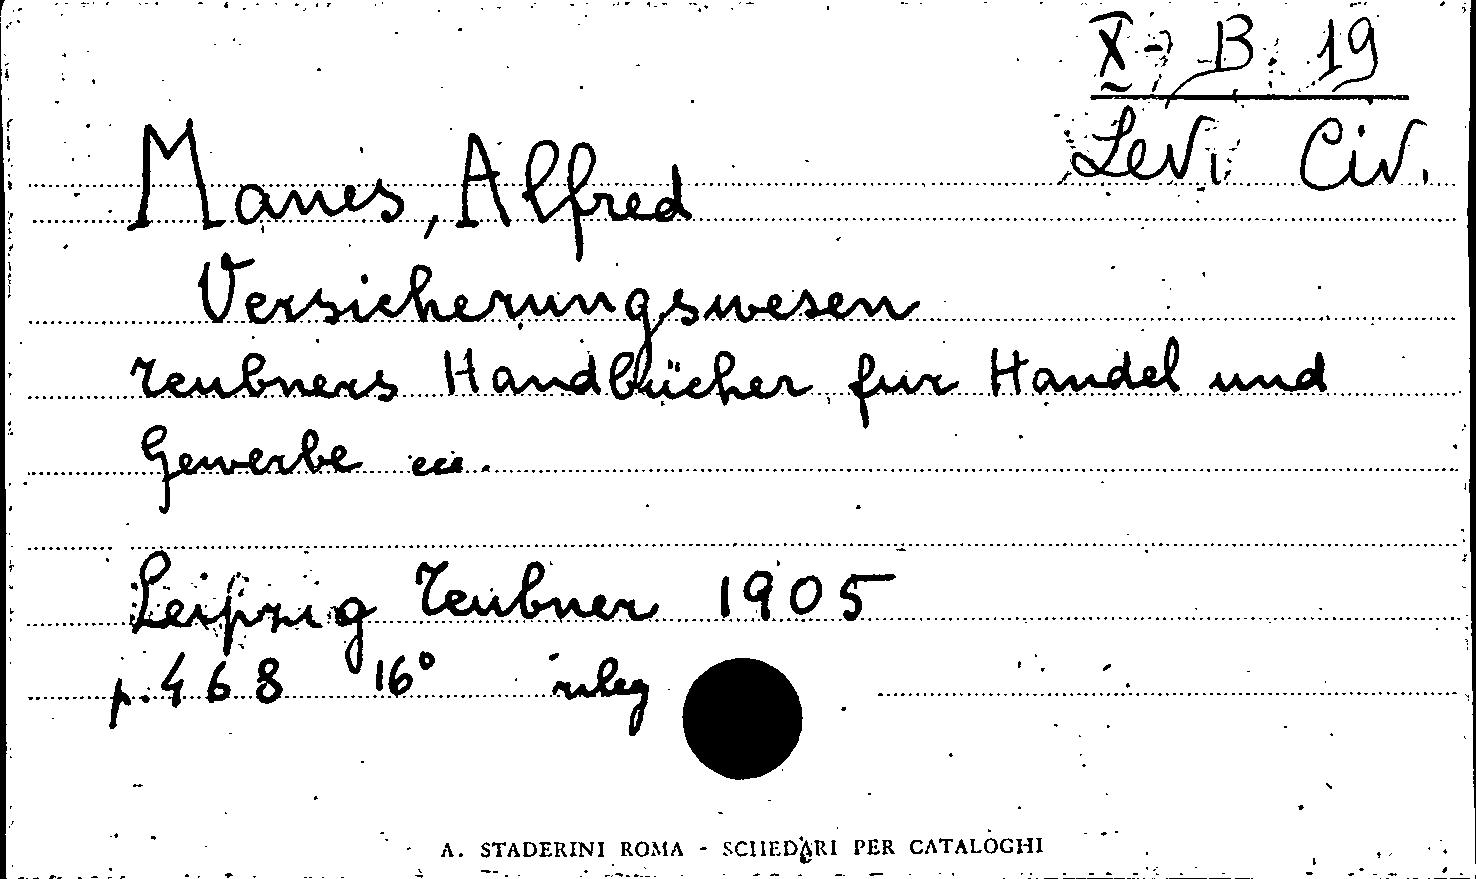 X - B. 19
Lev. Civ.
Manes, Alfred
Versicherungswesen
Teubners Handbücher fur Handel und
Gewerbe ecc.
Leipzig Teubner 1905
p. 468 16° rileg
A. STADERINI ROMA - SCHEDARI PER CATALOGHI